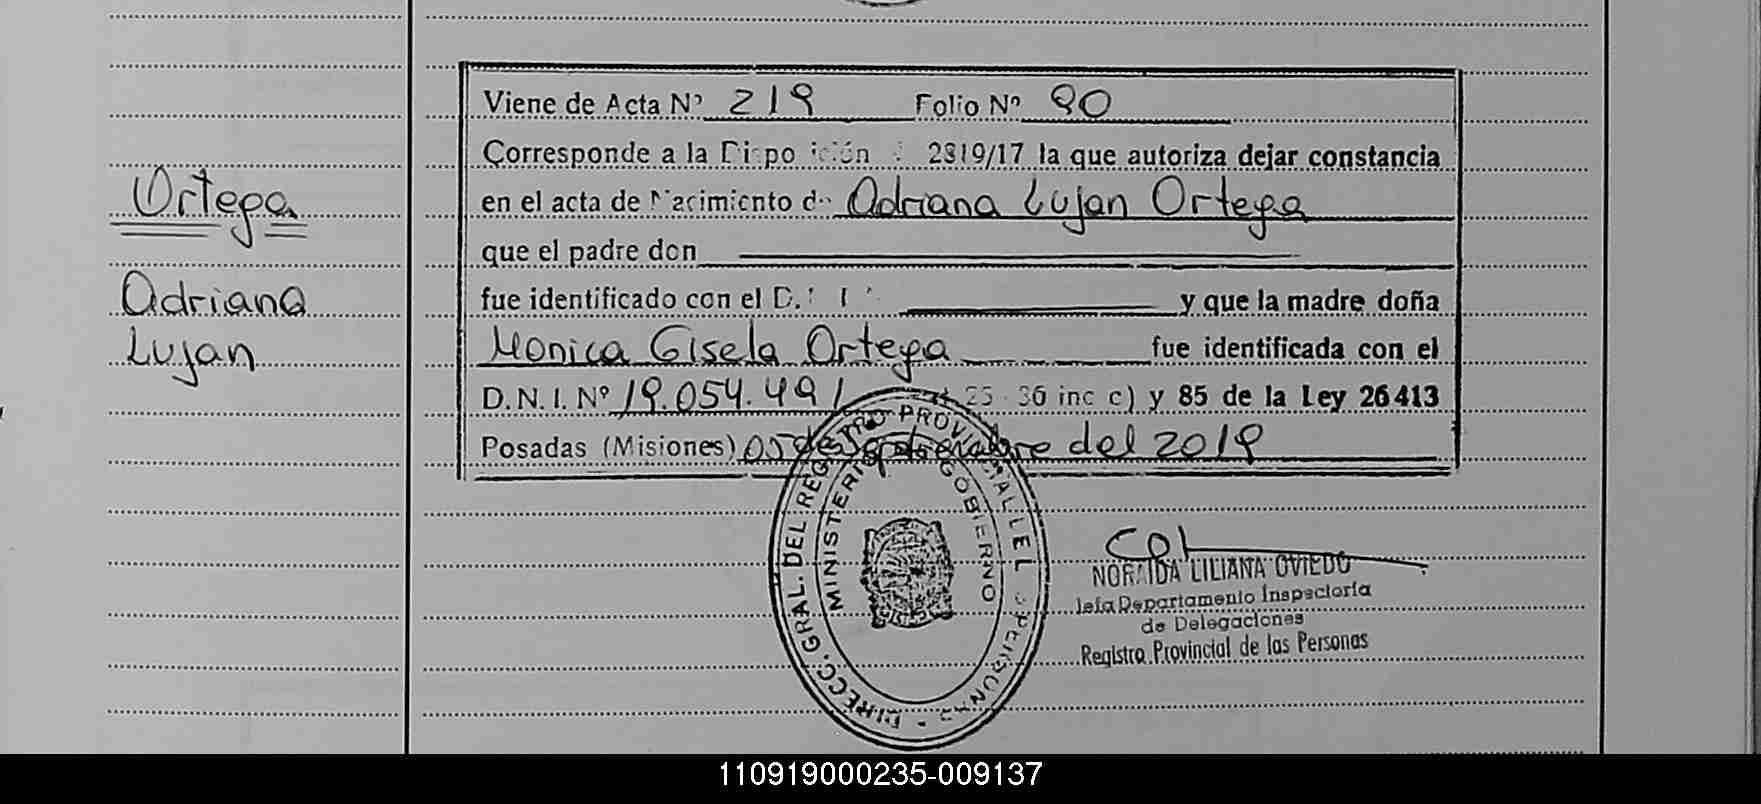 Viene de Acta Nº 219 Folio Nº 90
Corresponde a la Disposición 2819/17 la que autoriza dejar constancia
en el acta de Nacimiento de Adriana Lujan Ortega
que el padre don
fue identificado con el D. y que la madre doña
Monica Gisela Ortega fue identificada con el
D.N.I. Nº 19.054.491 36 inc c) y 85 de la Ley 26413
Posadas (Misiones) 05 de septiembre del 2019
Ortega
Adriana
Lujan
DIRECC. GRAL. DEL REGISTRO PROVINCIAL DE PERSONAS
MINISTERIO GOBIERNO
NORAIDA LILIANA OVIEDO
Jefa Departamento Inspectoría
de Delegaciones
Registro Provincial de las Personas
110919000235-009137